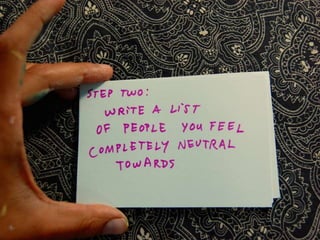 STEP TWO:
WRITE A LIST
OF PEOPLE YOU FEEL
COMPLETELY NEUTRAL
TOWARDS